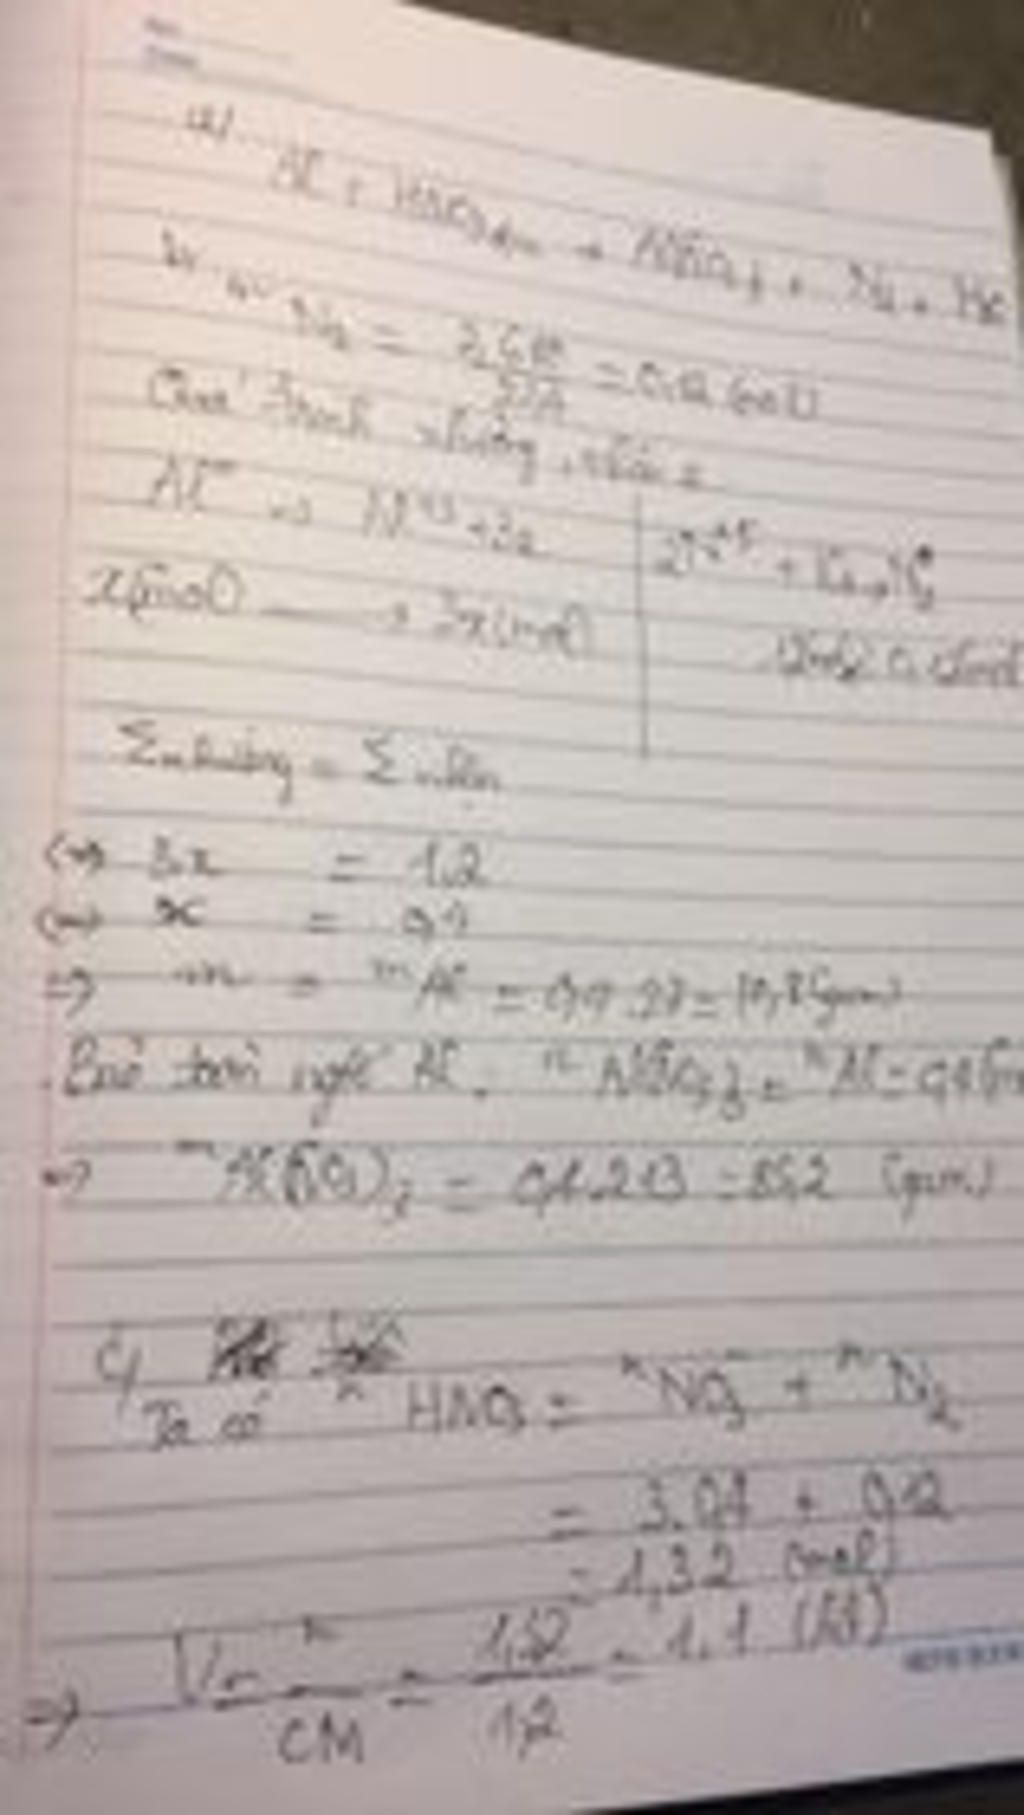 a/
Al + HNO3 → Al(NO3)3 + N2 + H2
b/ n N2 = = 0,12 (mol)
Quá trình nhường, nhận e
Al → Al+3 + 3e
2N+5 + → N2
x(mol) → 3x(mol)
Σ nhường = Σ nhận
<=> 3x = 1,2
<=> x = 0,4
=> m = m Al = 0,4.27 = 10,8 (gam)
Bảo toàn ngtố Al: n Al(NO3)3 = n Al = 0,4
=> m Al(NO3)3 = 0,4.213 = 85,2 (gam)
c/
Ta có n HNO3 = n NO3- + n N2
= 3.0,4 + 0,12
= 1,32 (mol)
=> V = n/CM = 1,32/1,2 = 1,1 (lít)